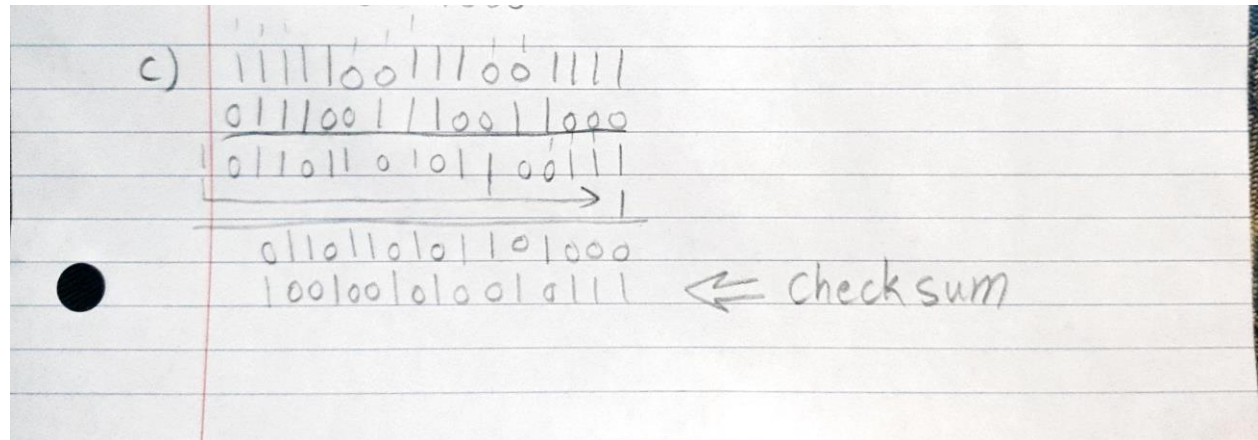 c) 1111100111001111
0111001110011000
10110110101100111
1
0110110101101000
1001001010010111 ⇐ Checksum